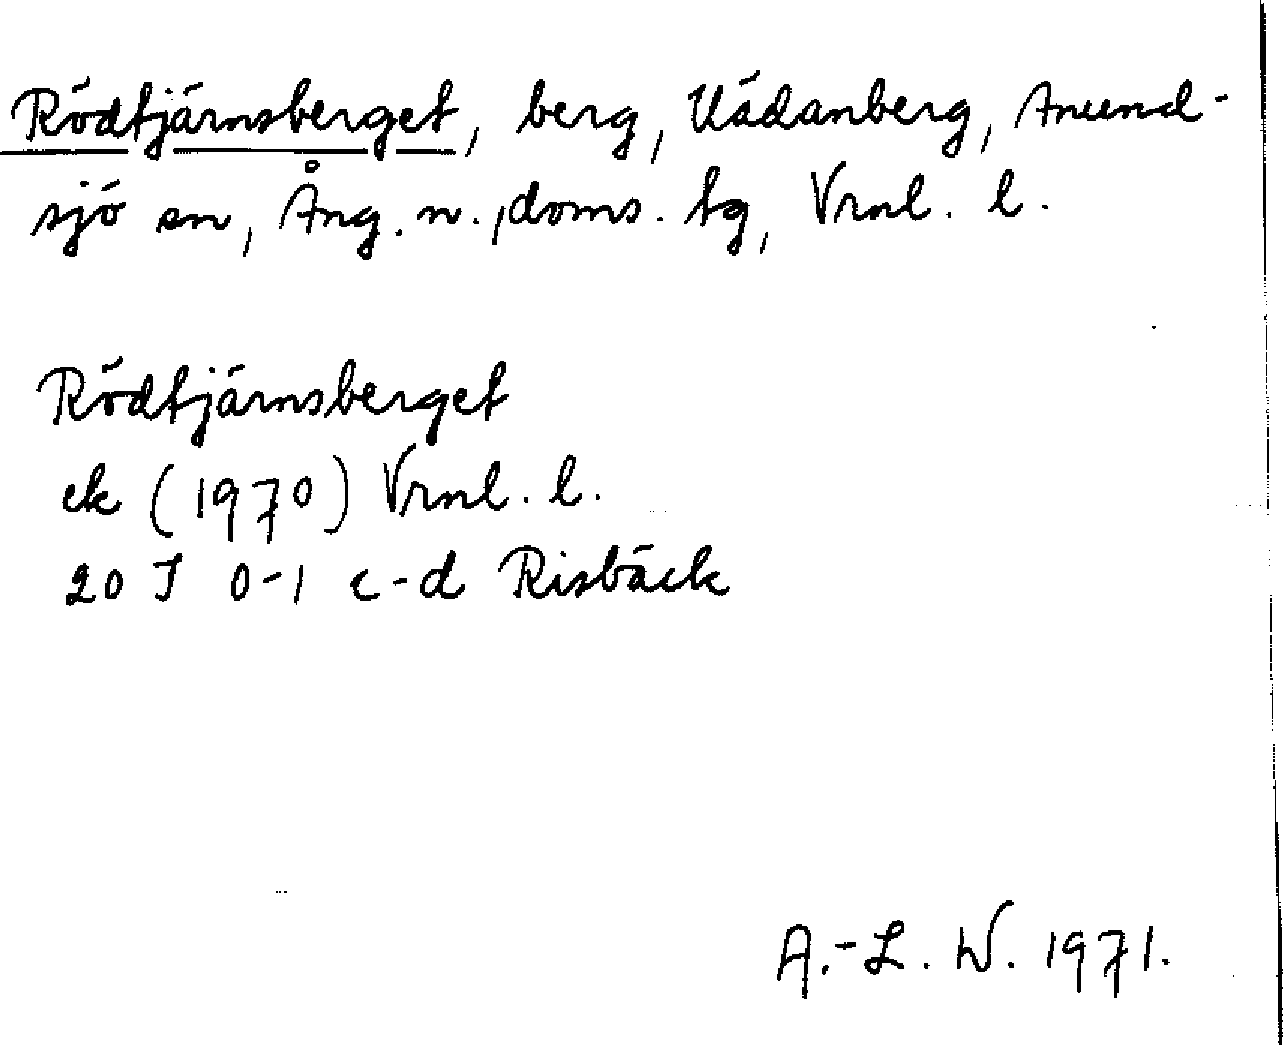 Rödtjärnsberget, berg, Uådanberg, Anund-
sjö sn, Ång. n., doms. tg, Vrnl. l.
Rödtjärnsberget
ek (1970) Vrnl. l.
20 J 0-1 c-d Risbäck
A.-L. W. 1971.